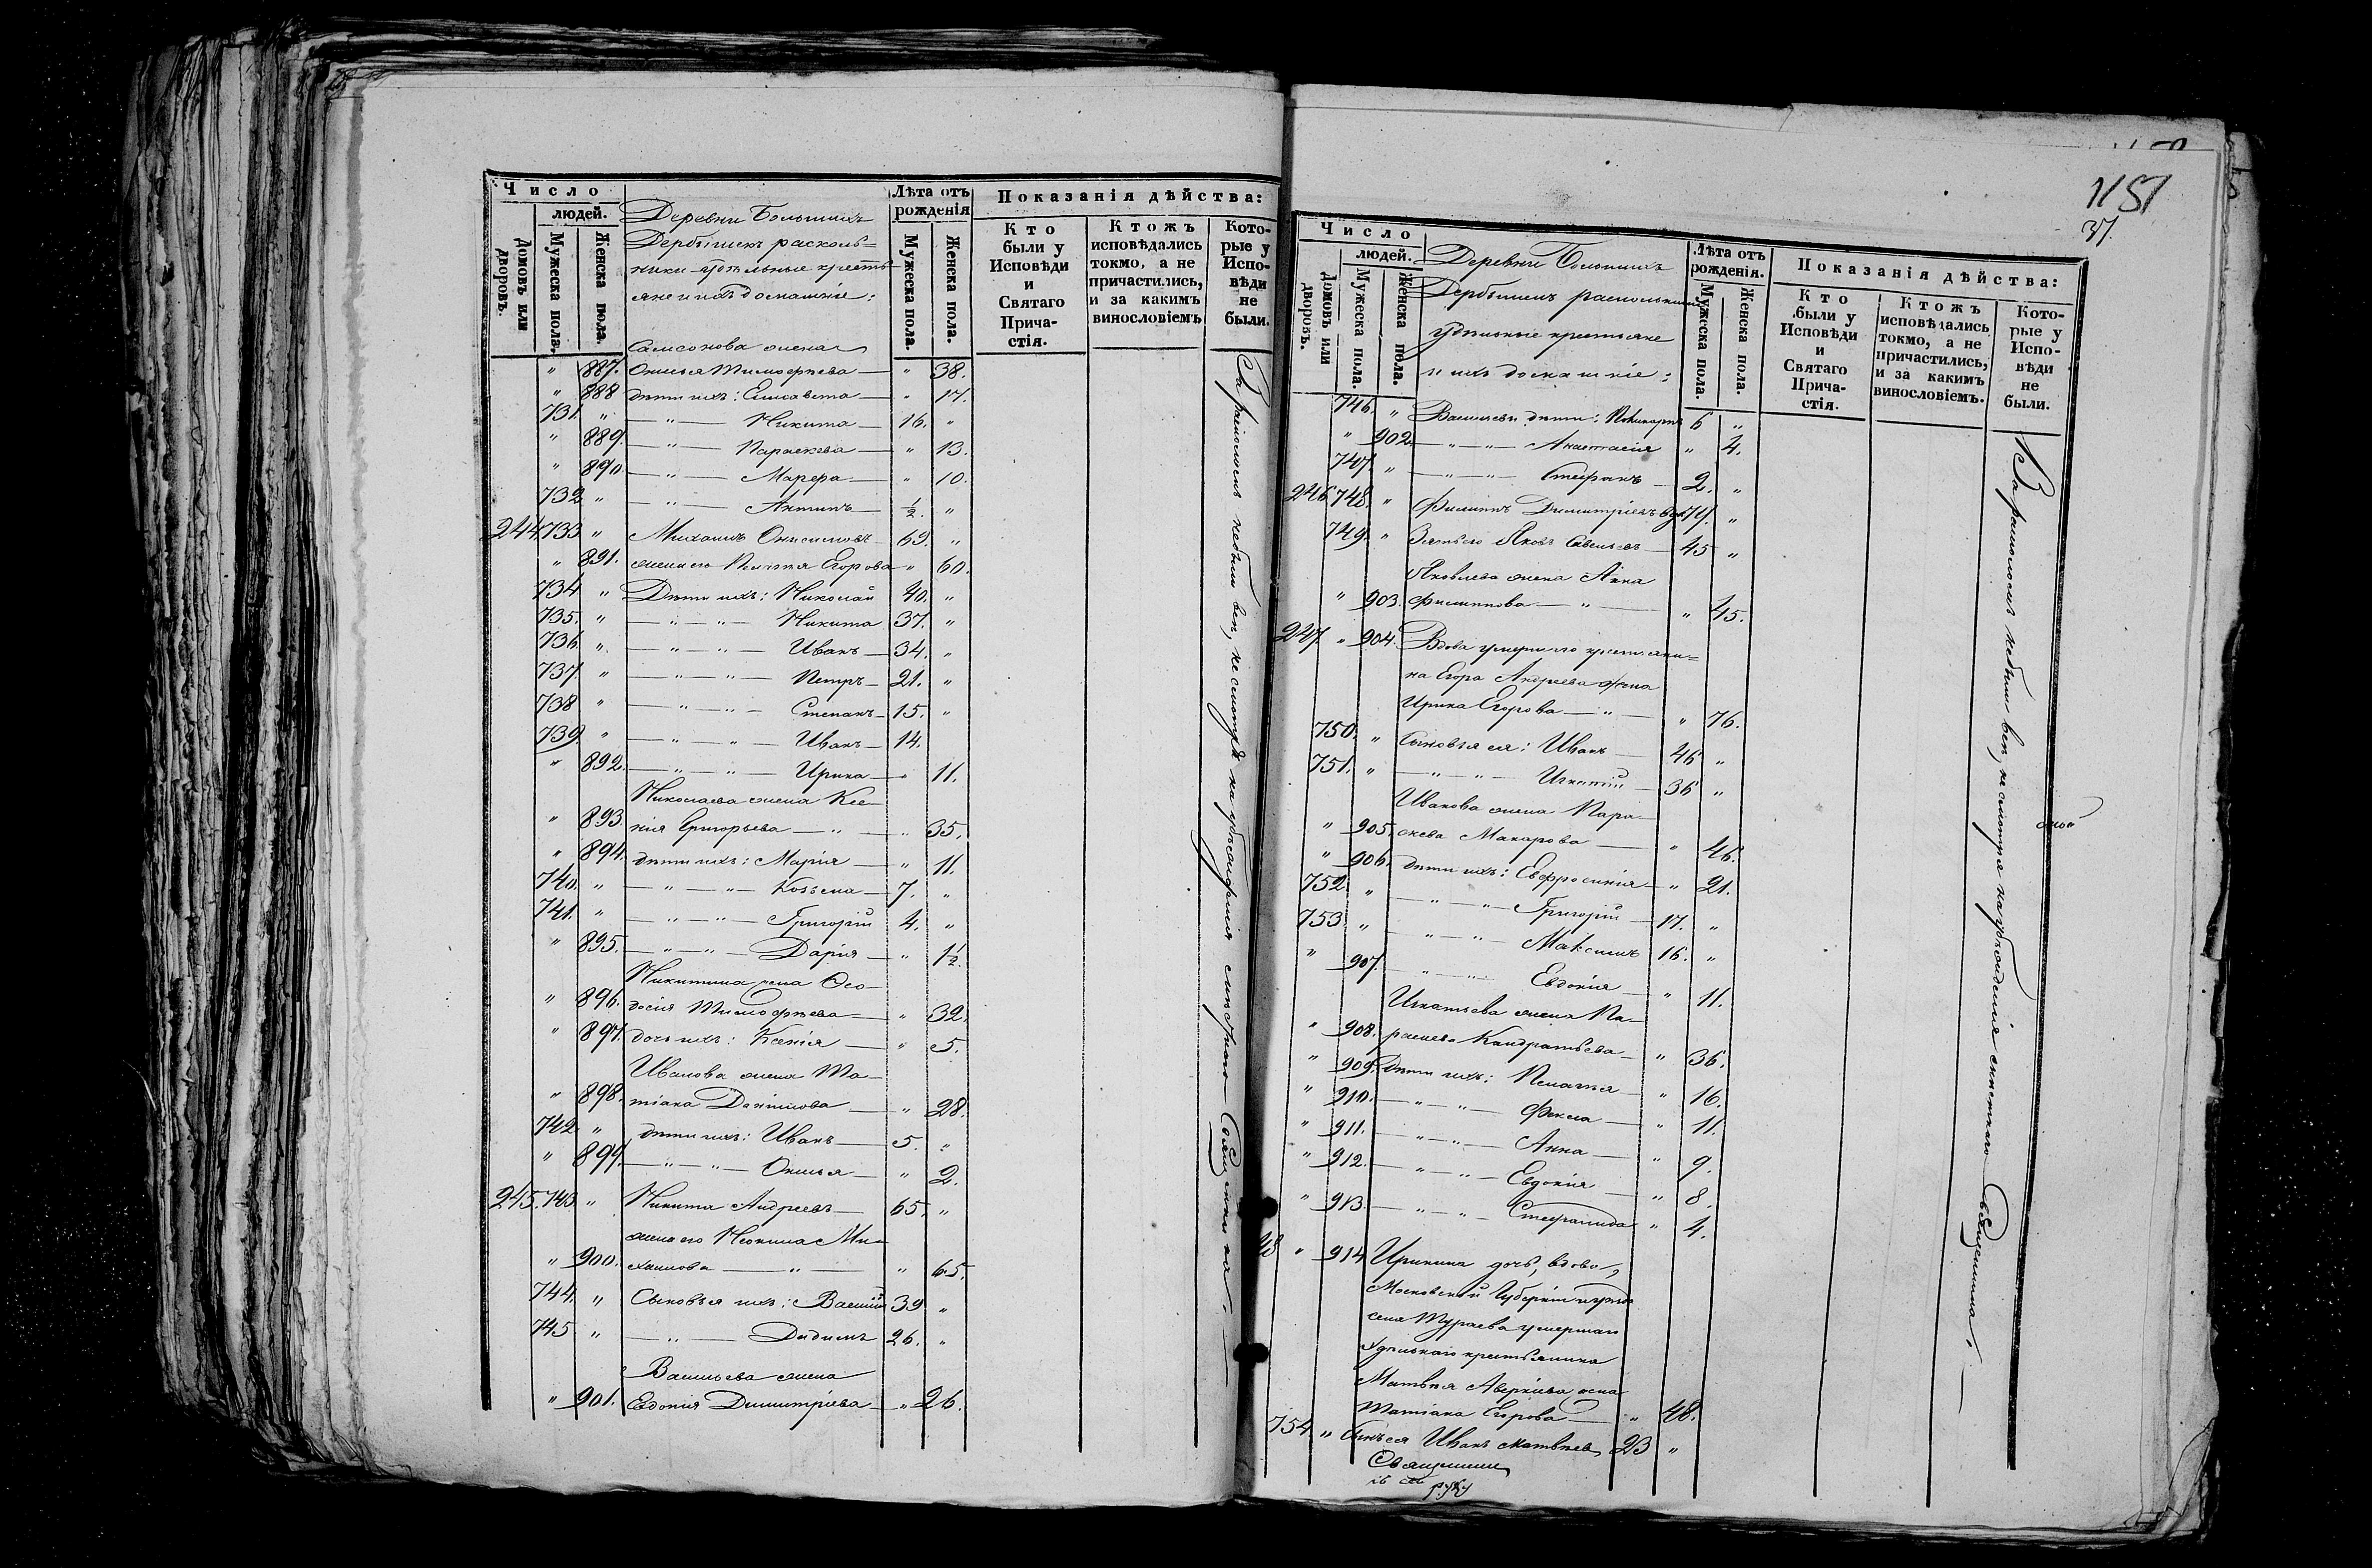 Число
людей.
Домовъ или дворовъ.
Мужеска пола.
Женска пола.
Деревни Большихъ
Дербышекъ расколь=
ники удѣльные кресть-
яне и ихъ домашніе:
Лѣта отъ рожденія
Мужеска пола.
Женска пола.
Показанія дѣйства:
Кто были у Исповѣди и Святаго Причастія.
Ктожъ исповѣдались токмо, а не причастились, и за какимъ винословіемъ
Которые у Исповѣди не были.
Самсонова жена
" 887. Ѳимья Тимофѣева — " 38.
" 888 дѣти ихъ: Елисавета — " 17.
731. " — " — Никита — 16. "
" 889. — " — Параскева — " 13.
" 890. — " — Марѳа — " 10.
732 " — " — Антипъ — ½. "
244 733 " Михаилъ Онисимовъ 69. "
" 891. жена его Пелагея Егорова " 60.
734 " Дѣти ихъ: Николай 40. "
735. " — " — " — Никита 37. "
736 " — " — " — Иванъ — 34. "
737. " — " — " — Петръ — 21. "
738 " — " — " — Степанъ — 15. "
739. " — " — " — Иванъ — 14.
" 892. — " — " — Ирина — " 11.
Николаева жена Ксе-
" 893. нія Григорьева — " — " 35.
" 894. дѣти ихъ: Марія — " 11.
740. " — " — " — Козьма — 7. "
741. " — " — " — Григорій 4. "
" 895. — " — " — Дарія — " 1½.
Никитина жена Ѳео-
" 896. досія Тимофѣева — " 32.
" 897. дочь ихъ: Ксенія — " 5.
Иванова жена Та-
" 898. тіана Даніилова — " 28.
742 " дѣти ихъ: Иванъ — 5. "
" 899. — " — " — Ѳимья — " 2.
245. 743 " Никита Андреевъ — 65. "
жена его Неонила Ми-
" 900. хаилова — " — " 65.
744. " Сыновья ихъ: Василій 39 "
745 " — " — Дидимъ 26. "
Васильева жена
" 901. Евдокія Димитріева — " 26.
За расколомъ небыли все, не смотря на убѣжденія мѣстнаго Священника. —
1151
37.
Число
людей.
Домовъ или дворовъ.
Мужеска пола.
Женска пола.
Деревни Большихъ
Дербышекъ раскольники
удѣльные крестьяне
и ихъ домашніе:
Лѣта отъ рожденія.
Мужеска пола.
Женска пола.
Показанія дѣйства:
Кто были у Исповѣди и Святаго Причастія.
Ктожъ исповѣдались токмо, а не причастились, и за какимъ винословіемъ.
Которые у Исповѣди не были.
746. " Васильевы дѣти: Поликарпъ 6 "
" 902. — " — " — Анастасія " 4.
747. " — " — " — Стефанъ — 2. "
246 748. " Филиппъ Димитріевъ вд. 74. "
749. " Зять его Яковъ Савельевъ — 45 "
Яковлева жена Анна
" 903. Филиппова — " — " 45.
247 " 904. Вдова умершаго крестьяни=
на Егора Андреева жена
Ирина Егорова — " — " 76.
750. " Сыновья ея: Иванъ — 46 "
751. " — " — " — Игнатій — 36 "
Иванова жена Пара-
" 905. скева Макарова — " 46.
" 906. дѣти ихъ: Евфросинія — " 21.
752 " — " — " — Григорій — 17. "
753. " — " — " — Максимъ 16. "
" 907. — " — " — Евдокія — " 11.
Игнатьева жена Па-
" 908. раскева Кандратьева — " 36.
" 909. Дѣти ихъ: Пелагея — " 16.
" 910. — " — " — Фекла — " 11.
" 911. — " — " — Анна — " 9.
" 912. — " — " — Евдокія — " 8.
" 913. — " — " — Стефанида " 4.
48 " 914 Иринина дочь, вдова,
Московской Губерніи
села Тураева умершаго
Удѣльнаго крестьянина
Матвѣя Аверкіева жена
Татіана Егорова — " 48.
754 " Сынъ ея Иванъ Матвѣевъ 23 "
За расколомъ небыли все, не смотря на убѣжденія мѣстнаго Священника. —
Священникъ